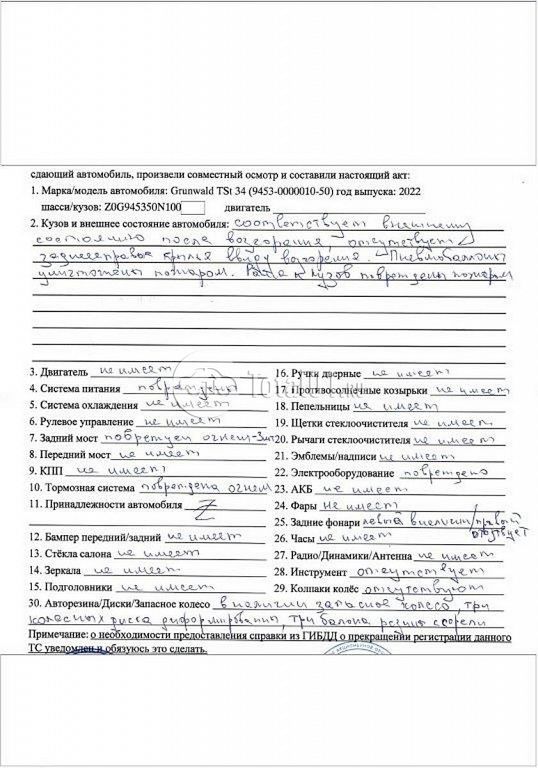 сдающий автомобиль, произвели совместный осмотр и составили настоящий акт:
1. Марка/модель автомобиля: Grunwald TSt 34 (9453-0000010-50) год выпуска: 2022
шасси/кузов: Z0G945350N100 двигатель
2. Кузов и внешнее состояние автомобиля: соответствует внешнему
состоянию после возгорания, отсутствует
заднее правое крылья ввиду возгорания. Пневмобаллоны
уничтожены пожаром. Рама и кузов повреждены пожаром
3. Двигатель не имеет
4. Система питания повреждена
5. Система охлаждения не имеет
6. Рулевое управление не имеет
7. Задний мост поврежден огнем - 3шт
8. Передний мост не имеет
9. КПП не имеет
10. Тормозная система повреждена огнем
11. Принадлежности автомобиля Z
12. Бампер передний/задний не имеет
13. Стёкла салона не имеет
14. Зеркала не имеет
15. Подголовники не имеет
16. Ручки дверные не имеет
17. Противосолнечные козырьки не имеет
18. Пепельницы не имеет
19. Щетки стеклоочистителя не имеет
20. Рычаги стеклоочистителя не имеет
21. Эмблемы/надписи не имеет
22. Электрооборудование повреждено
23. АКБ не имеет
24. Фары не имеет
25. Задние фонари левый в наличии/правый
отсутствует
26. Часы не имеет
27. Радио/Динамики/Антенна не имеет
28. Инструмент отсутствует
29. Колпаки колёс отсутствуют
30. Авторезина/Диски/Запасное колесо в наличии запасное колесо, три
колесных диска деформированы, три баллона резина сгорели
Примечание: о необходимости предоставления справки из ГИБДД о прекращении регистрации данного
ТС уведомлен и обязуюсь это сделать.